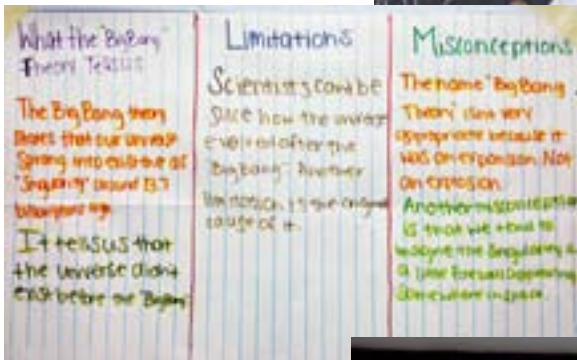 What the "Big Bang"
Theory Tells us
The Big Bang theory
states that our universe
sprang into existence as
"singularity" around 13.7
billion years ago
It tells us that
the universe didn't
exist before the "Big Bang"
Limitations
Scientists can't be
sure how the universe
evolved after the
"Big Bang" Another
limitation is the original
cause of it.
Misconceptions
The name "Big Bang
Theory" isn't very
appropriate because it
was an expansion. Not
an explosion.
Another misconception
is that we tend to
imagine the singularity as
a little fireball appearing
somewhere in space.